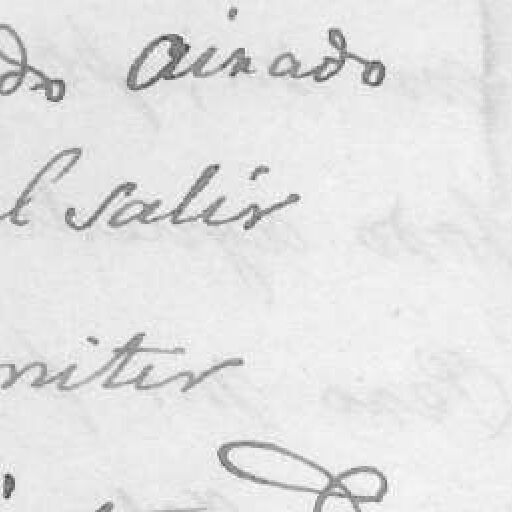 do airado
l salir
niter